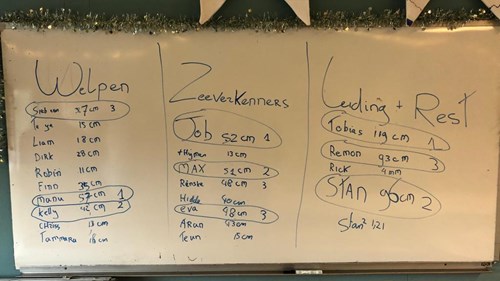 Welpen
37cm 3
15 cm
Liam 18 cm
Dirk 28 cm
Robin 11cm
Finn 35 cm
Manu 57 cm 1
Kelly 42 cm 2
18 cm
Tammara 18 cm
Zeeverkenners
Job 52 cm 1
Thymen 13 cm
MAX 51 cm 2
Renske 48 cm 3
Hidde 40cm
eva 48 cm 3
Aran 43cm
Teun 15 cm
Leiding + Rest
Tobias 119 cm 1
Remon 93 cm 3
Rick
STAN 96cm 2
Stan² 1,21